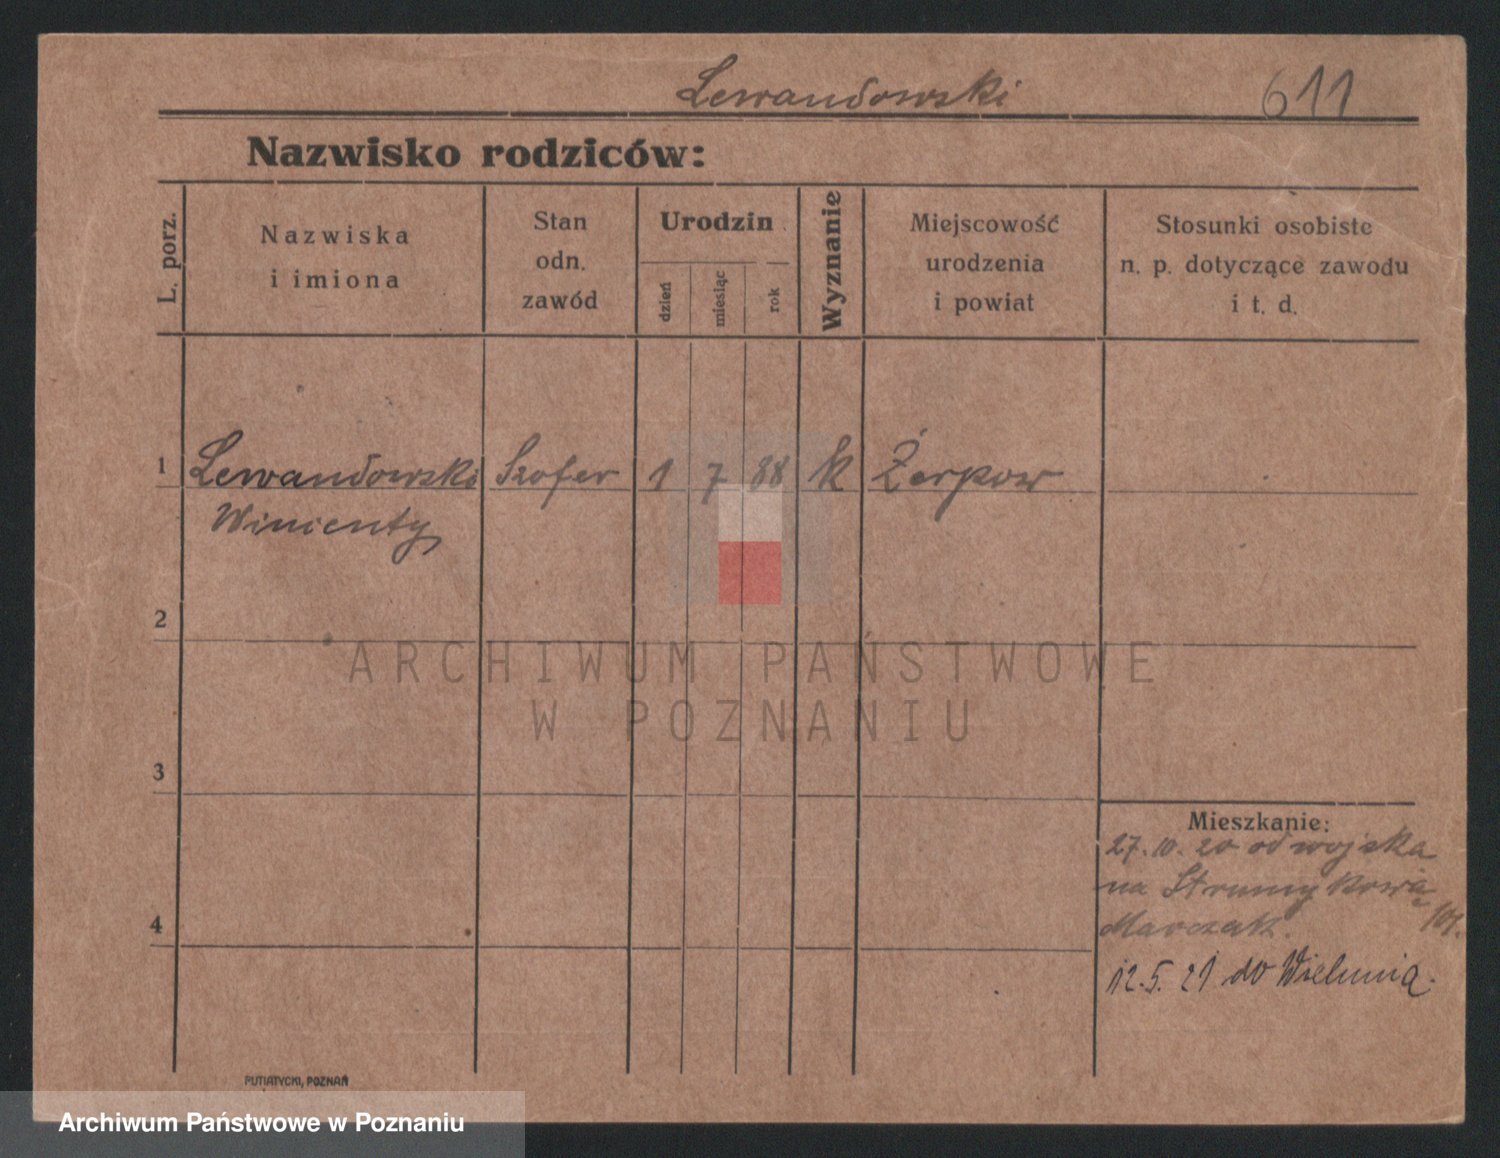 Lewandowski 611
Nazwisko rodziców:
L. porz.
Nazwiska
i imiona
Stan
odn.
zawód
Urodzin
dzień
miesiąc
rok
Wyznanie
Miejscowość
urodzenia
i powiat
Stosunki osobiste
n. p. dotyczące zawodu
i t. d.
1 Lewandowski Szofer 1 7 88 k Żerpow
Winienty
2
3
4
Mieszkanie:
27.10.20 od wojska
na Strumykową
Marczak. 101.
12.5.21 do Wielunia.
PUTIATYCKI, POZNAŃ
ARCHIWUM PAŃSTWOWE
W POZNANIU
Archiwum Państwowe w Poznaniu